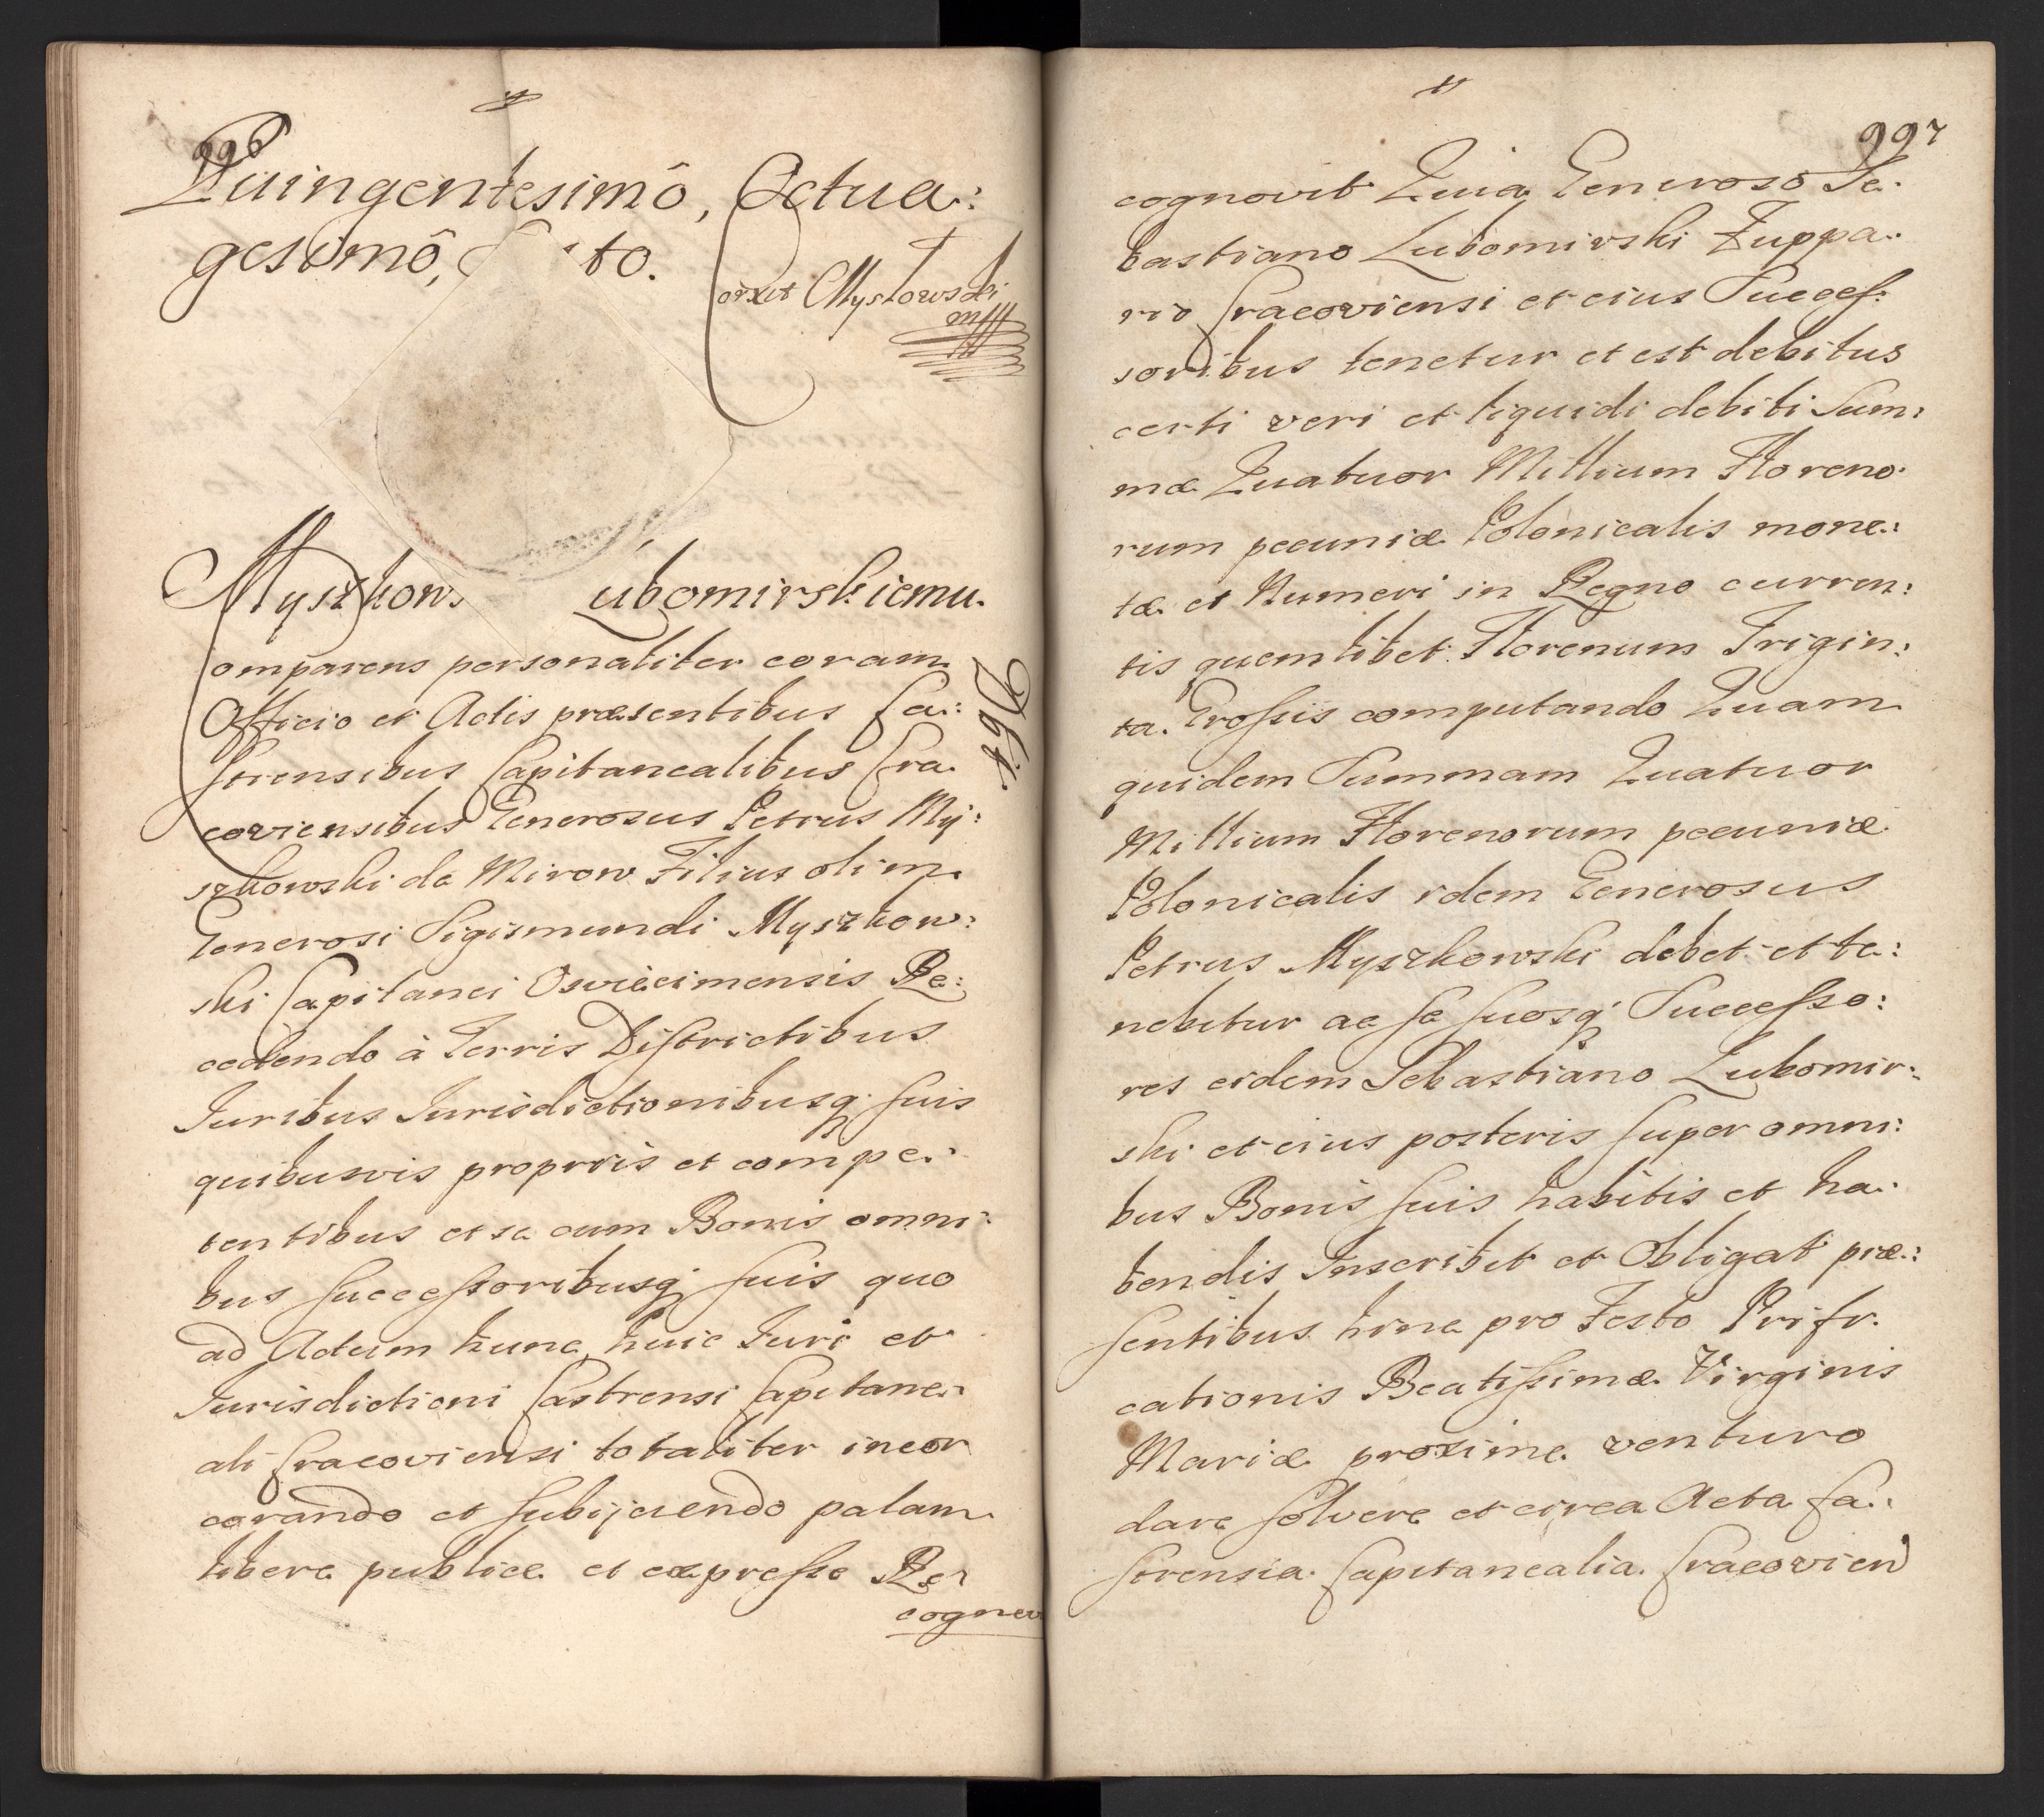 996
Quingentesimô, Octua:
gesimô, to.
Myszkow. ubomirskiemu.
Comparens personaliter coram
Officio et Actis præsentibus Ca:
strensibus Capitanealibus Cra
coviensibus Generosus Petrus My:
szkowski de Mirow Filius olim
Generosi Sigismundi Myszkow:
ski Capitanei Oswiecimensis Re:
cedendo à Terris Districtibus
Juribus Jurisdictionibusq; suis
quibusvis propriis et compe:
tentibus et se cum Bonis omni:
bus successoribusq; suis quo
ad Actum hunc huic Juri et
Jurisdictioni Castrensi Capitane:
ali Cracoviensi totaliter incor
corando et subijciendo palam
libere publice et expresse Re:
cognov
997
cognovit Quia Generoso Se:
bastiano Lubomirski Zuppa:
rio Cracoviensi et eius Succes:
soribus tenetur et est debitus
certi veri et liquidi debiti Sum:
mæ Quatuor Millium Floreno
rum pecuniæ Polonicalis mone:
tæ et Numeri in Regno curren:
tis quemlibet Florenum Trigin:
ta Grossis computando Quam
quidem Summam Quatuor
Millium Florenorum pecuniæ
Polonicalis idem Generosus
Petrus Myszkowski debet et te:
nebitur ac se suosq; Successo:
res eidem Sebastiano Lubomir:
ski et eius posteris super omni:
bus Bonis suis habitis et ha:
bendis Inscribit et Obligat præ:
sentibus hinc pro Festo Purifi
cationis Beatissimæ Virginis
Mariæ proxime venturo
dare solvere et circa Acta Ca:
strensia Capitanealia Cracovien